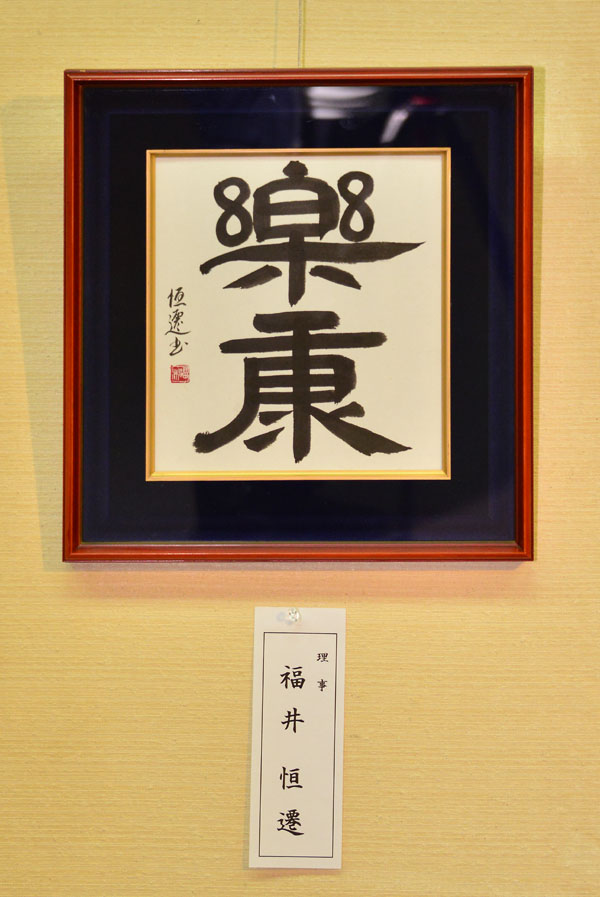 樂康
恒遷書
理事
福井恒遷